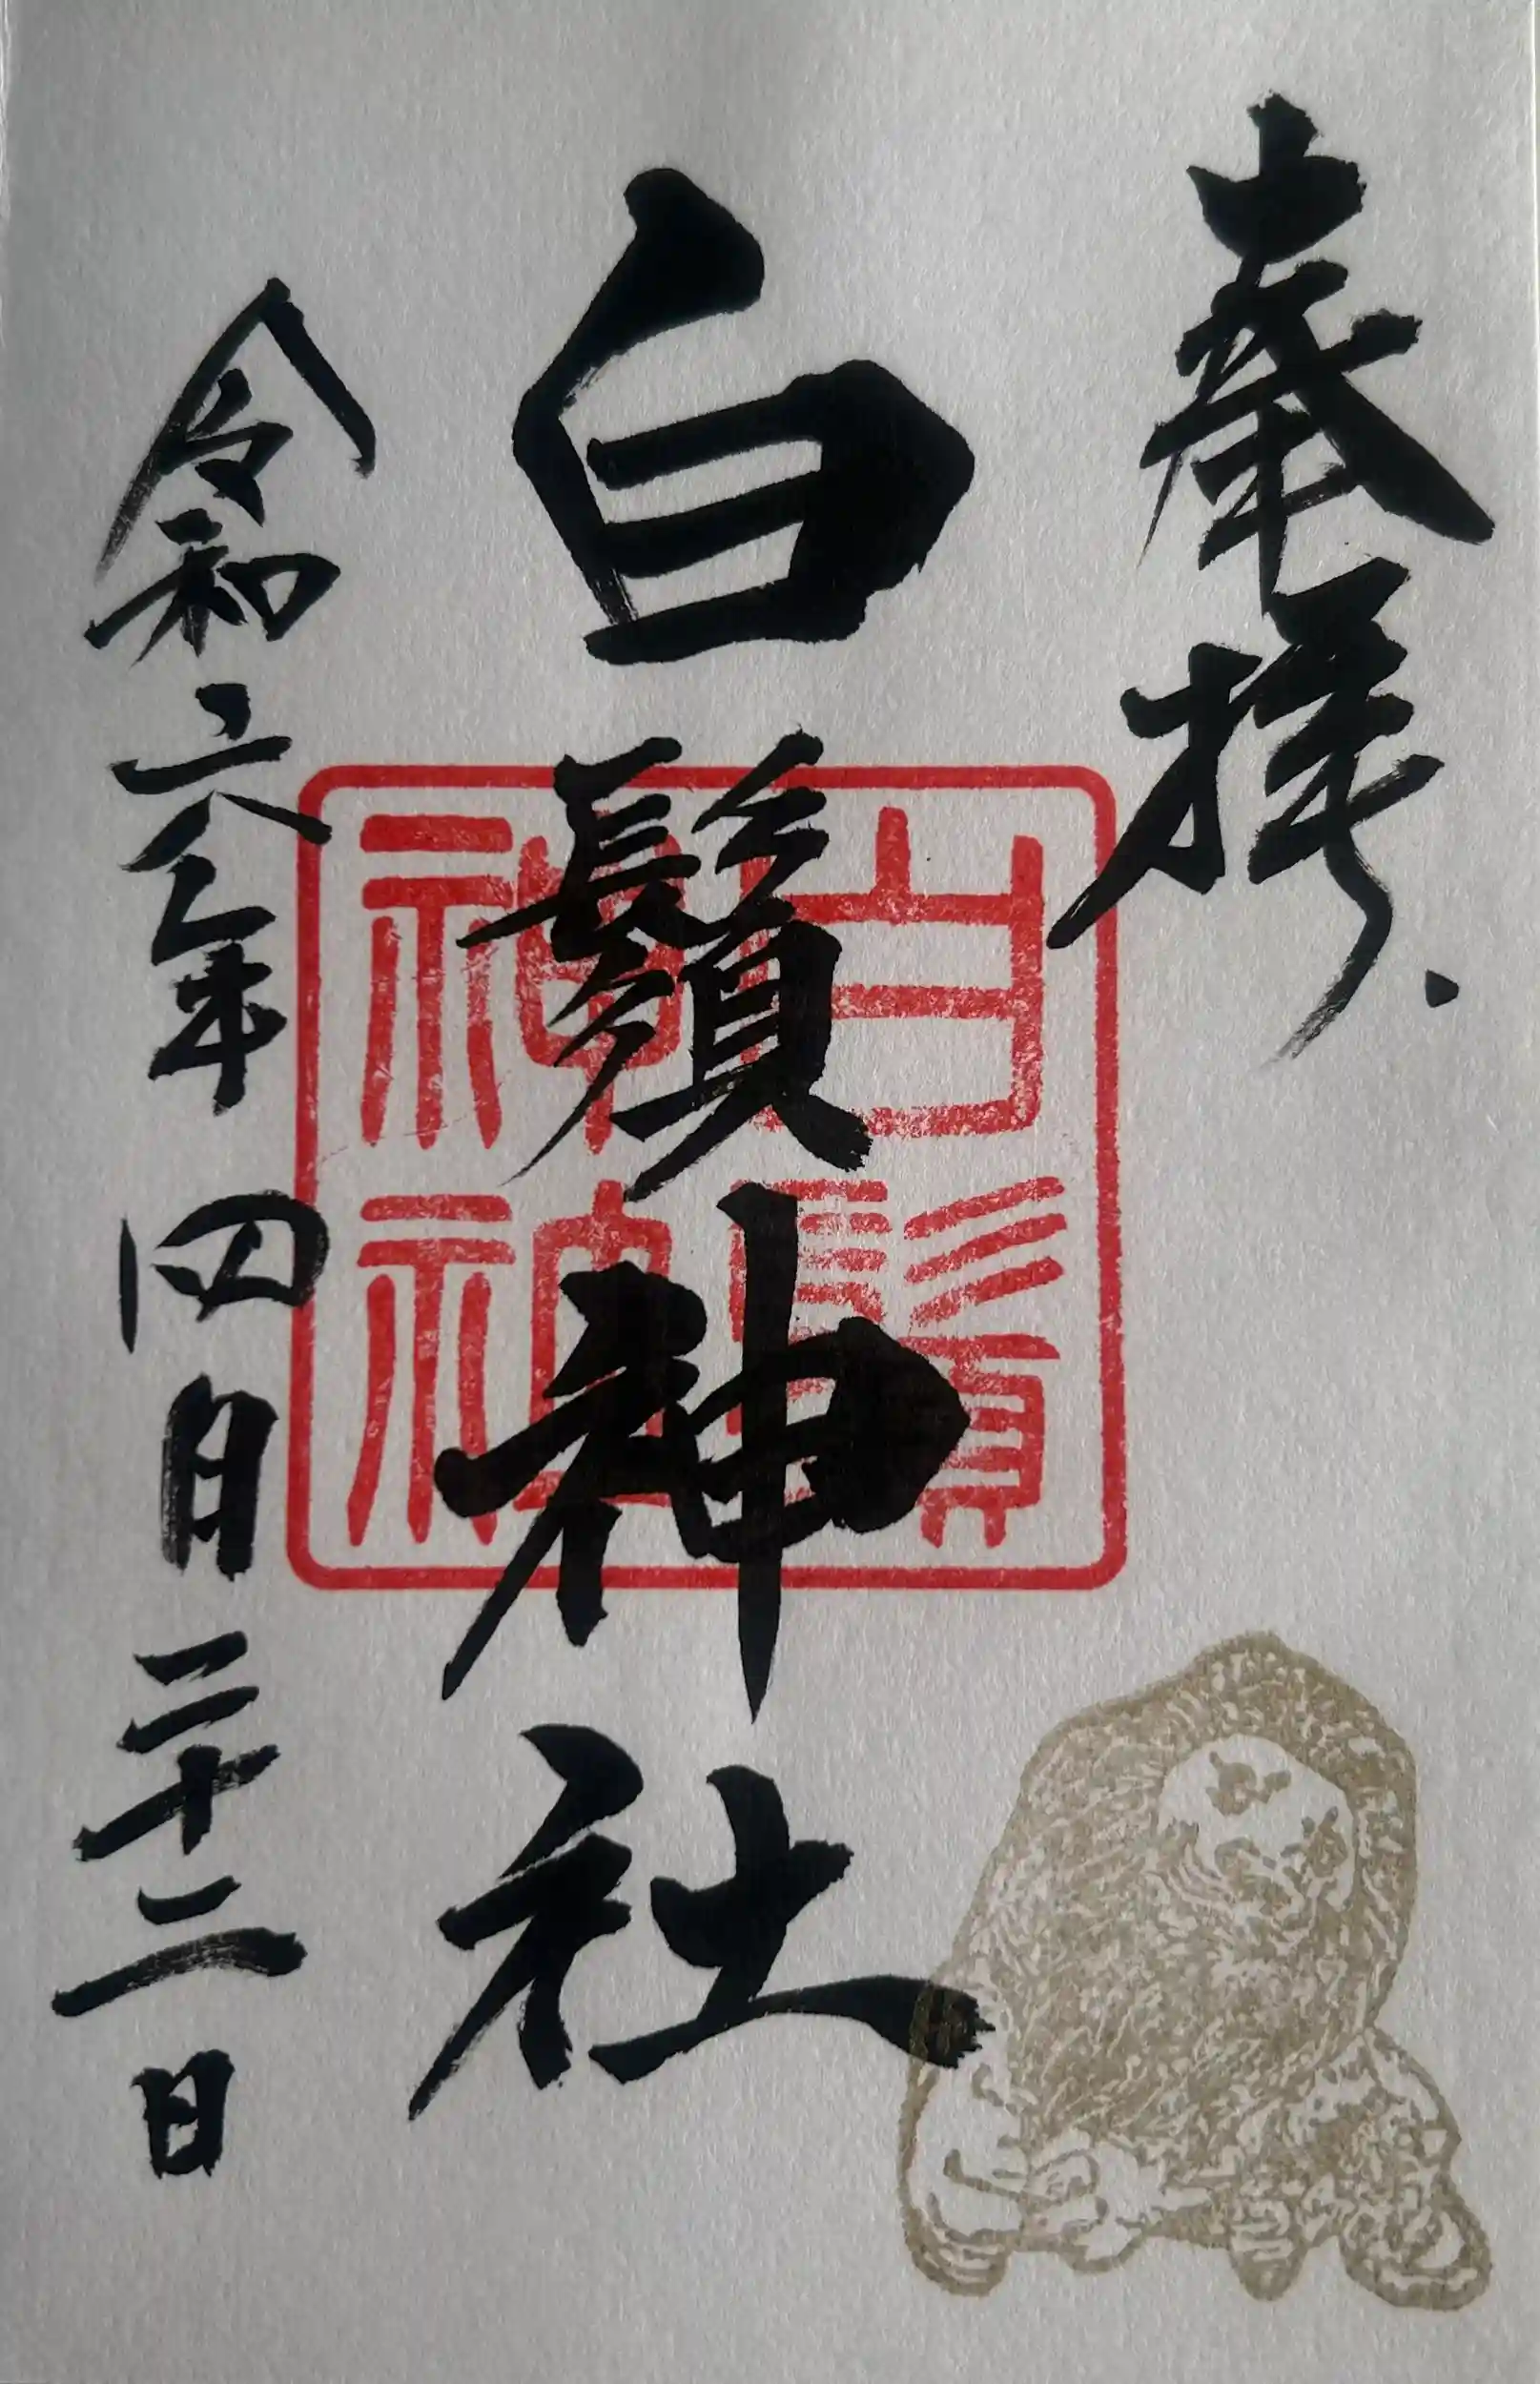 奉拝
白鬚神社
白鬚
神社
令和六年四月二十二日